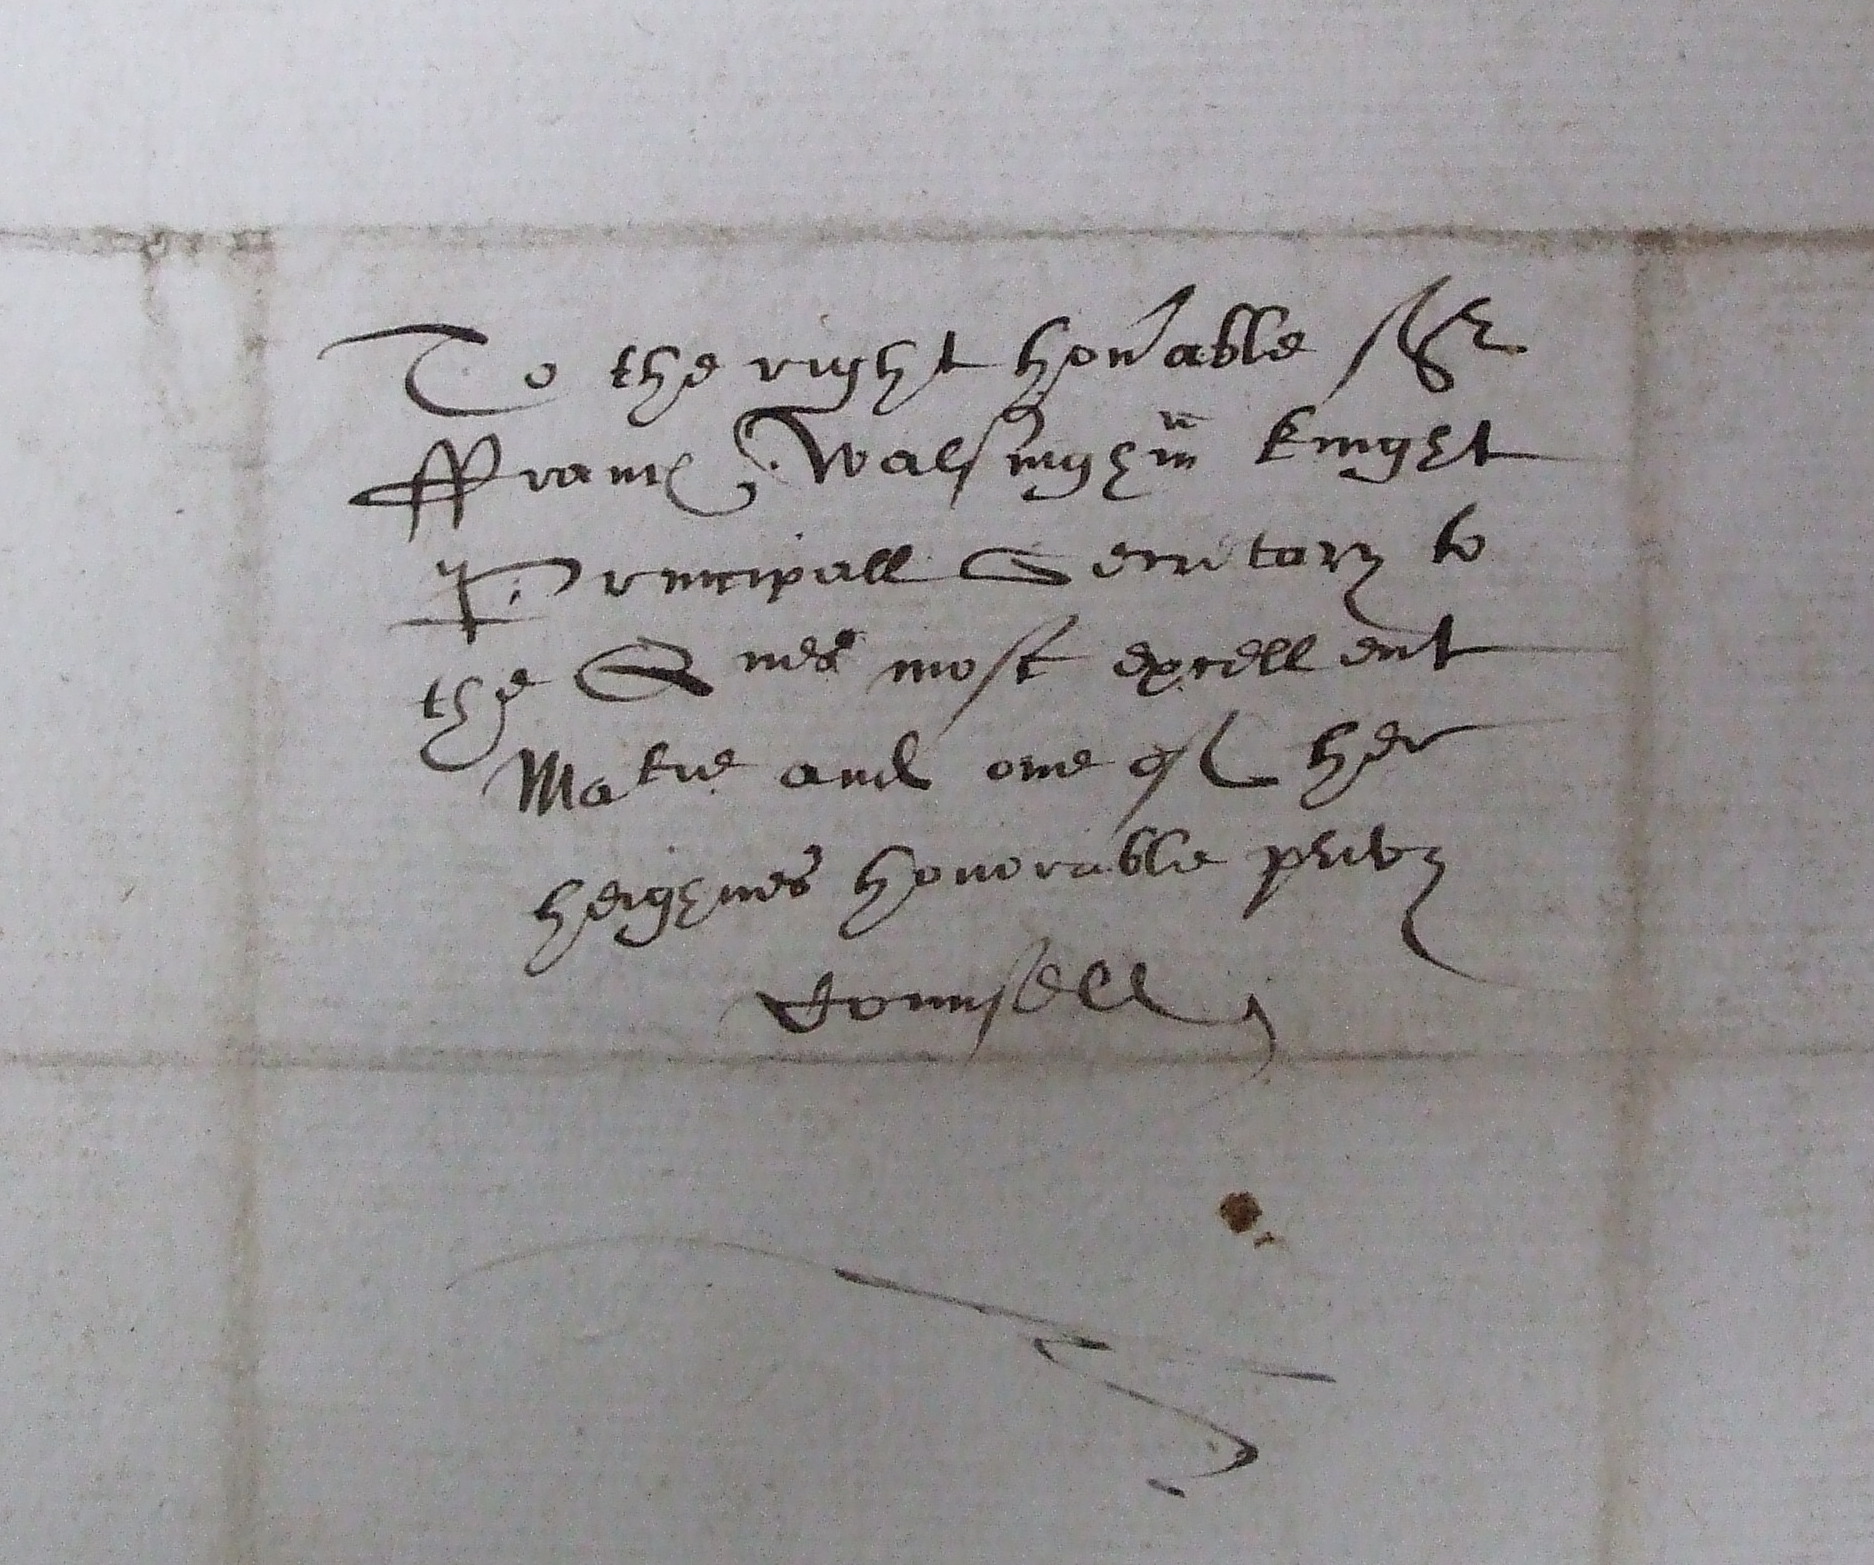 To the right honable Sr
ffrancs Walsinghm knight
Principall Secritary to
the Qnes most excellent
Matie and one of her
heighnes honorable privy
Counsell